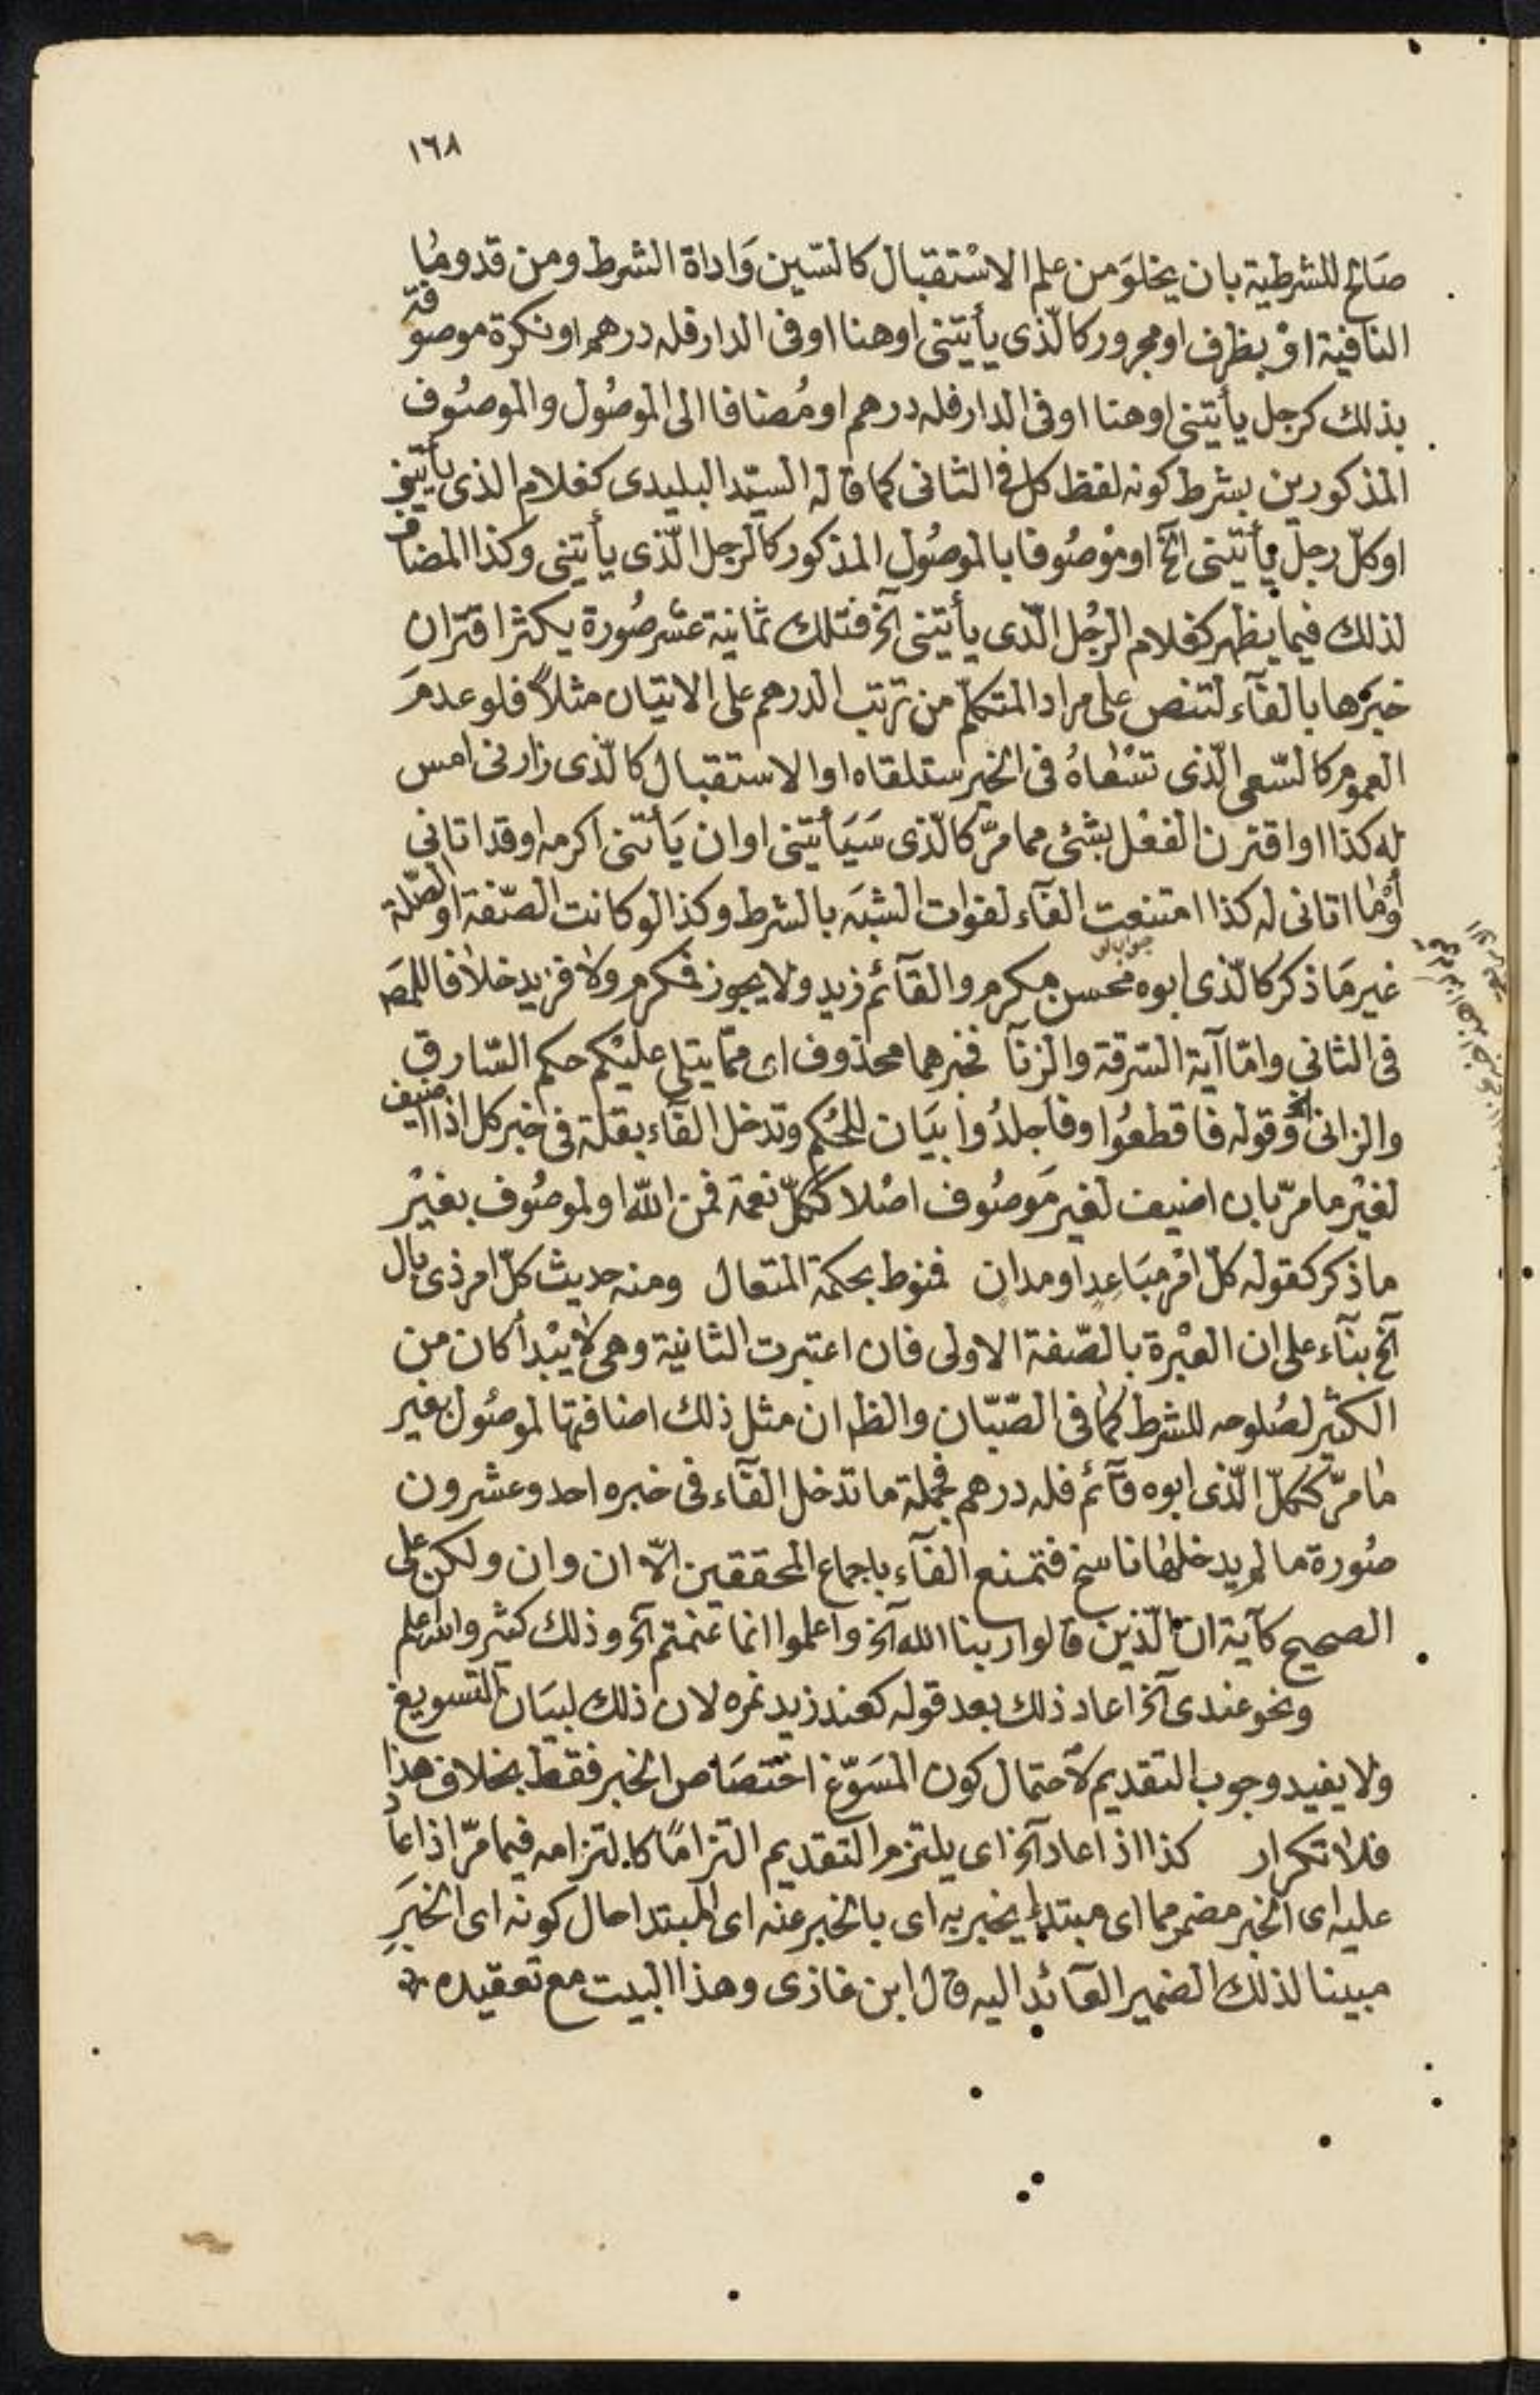 ١٦٨
صَالح للشرطية بان يخلوَ من علم الاسْتقبال كالسّين وَاداة الشرط ومن قد ومُا
النافية اوْ بظرف او مجرور كالّذى يأيتنى اوهنا او فى الدار فله درهم او نكرة موصوفة
بذلك كرجل يأيتنى اوهنا او فى الدار فله درهم او مُضافا الى الموصُول والموصُوف
المذكورين بشرط كونه لفظ كل فى الثانى كما قاله السيّد البليدى كغلام الذى يأيتنى
اوكلّ رجل يأيتنى الخ او موْصُوفا بالموصُول المذكور كالرجل الّذى يأيتنى وكذا المضاف
لذلك فيما يظهر كغلام الرجُل الّذى يأيتنى الخ فتلك ثمانية عشر صُورة يكثر اقتران
خبرها بالفآء لتنص على مراد المتكلّم من ترتب الدرهم على الاتيان مثلاً فلو عدمَ
العموم كالسّعى الّذى تسْعاهُ فى الخير ستلقاه او الاستقبال كالّذى زارنى امس
له كذا او اقترن الفعْل بشئ ممامرّ كالّذى سَيَأيتنى او ان يَأتنى اكرمه او قد اتانى
أوْما اتانى له كذا امتنعت الفآء لفوات الشبَه بالشرط وكذا لو كانت الصّفة او الصّلة
غير مَا ذكر كالّذى ابوه محسن مكرم والقآئم زيد ولا يجوز فمكرم ولا فزيد خلافا للمص
فى الثانى وامّا آية السّرقة والزنآ فخبرهما محذوف اى ممّا يتلى عليْكم حكم السّارق
والزانى الخ وقوله فاقطعُوا وفاجلدُوا بيَان للحُكم وتدخل الفآء بقلة فى خبر كل اذا اضيف
لغيْر مامرّ بان اضيف لغير مَوصُوف اصْلا ككلّ نعمة فمن اللّه او لموصُوف بغيْر
ما ذكر كقوله كلّ امْر مبَاعِد او مدان فمنوط بحكمة المتعال ومنه حديث كلّ امر ذى بال
الخ بنآء على ان العبْرة بالصّفة الاولى فان اعتبرت الثانية وهى لا يبْدأ كان من
الكثير لصُلوحه للشرط كما فى الصّبّان والظ ان مثل ذلك اضافتها لموصُول بغير
مامرّ ككلّ الّذى ابوه قآئم فله درهم فجملة ما تدخل الفآء فى خبره احد وعشرون
صُورة ما لم يدخلها ناسخ فتمنع الفآء باجماع المحققين الّا ان وان ولكن على
الصحيح كآية ان الّذين قالوا ربنا الله الخ واعلموا انما غنمتم الخ وذلك كثير والله اعلم
ونحو عندى الخ اعاد ذلك بعد قوله كعند زيد نمره لان ذلك لبيَان التسويغ
ولا يفيد وجوب التقديم لاحتمال كون المسَوّغ اختصَاص الخبر فقط بخلاف هذا
فلا تكرار كذا اذا عاد الخ اى يلتزم التقديم التزامًا كالتزامه فيما مرّ اذا عاد
عليه اى الخبر مضمر مما اى مبتدا يخبر به اى بالخبر عنه اى المبتدا حال كونه اى الخبَرِ
مبينا لذلك الضمير العآئد اليه قال ابن غازى وهذا البيت مع تعقيده